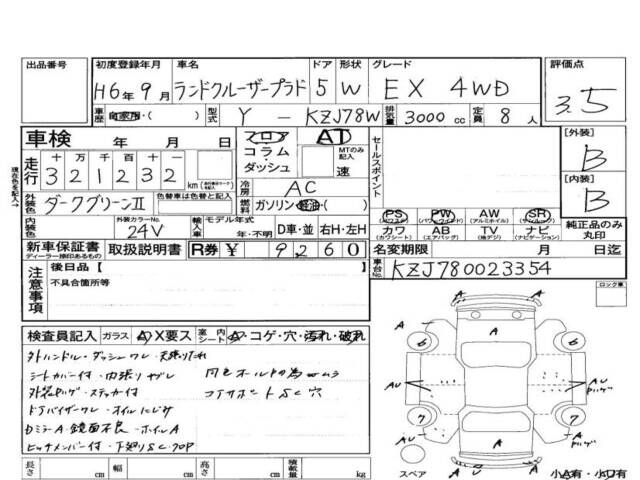 出品番号 初度登録年月 車名 ドア 形状 グレード 評価点
H6年9月 ランドクルーザープラド 5 W EX 4WD 3.5
車歴 自家用・( ) 型式 Y - KZJ78W 排気量 3000 cc 定員 8 人
車検 年 月 日 フロア AT セールスポイント [外装] B
走行 十 万 千 百 十 km コラム・ダッシュ MTのみ記入 速
321232
冷房 AC [内装] B
外装色 ダークグリーンII 色替車は色替と記入 燃料 ガソリン・軽油・( )
内装色 外装カラーNo. 24V 輸入車 モデル年式 年・不明 D車・並 右H・左H
PS PW AW SR 純正品のみ丸印
(パワステ) (パワーウィンドウ) (アルミホイル) (サンルーフ)
カワ AB TV ナビ
(カワシート) (エアバッグ) (地デジ) (ナビゲーション)
新車保証書 取扱説明書 R券 ¥ 9260 名変期限 月 日迄
ディーラー捺印あるもの
車台No. KZJ780023354
注意事項 後日品【
不具合箇所等
現在色を記入→
ロック車
検査員記入 ガラス A X要ス 室内シート A・コゲ・穴・汚れ・破れ
外ハンドル・ダッシュワレ・天張りたれ
シートカバー付・内張りヤブレ
ドアバイザーワレ・オイルにじみ
ミラーA・鏡面不良・ホイルA
ヒッチメンバー付・下廻りSC
コアサポートSC 穴
A
A
A
6 6
AU AU
7 7
A
A
長さ cm 幅 cm 高さ cm 積載量 kg スペア 小A有・小ウ有